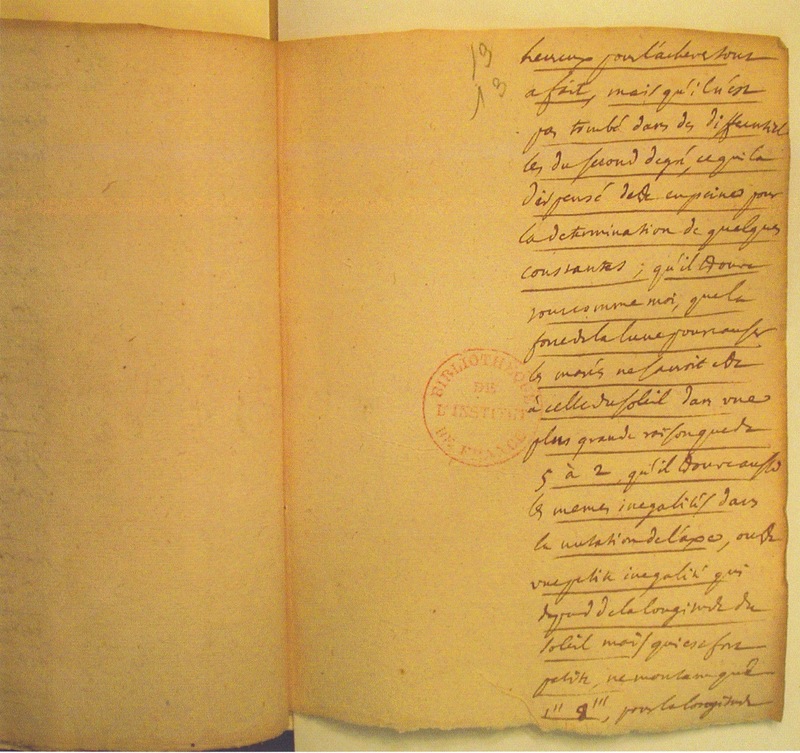 19
13
heureux pour l'achever tout
a fait, mais qu'il n'est
pas tombé dans des differentiel
les du second degré, ce qui l'a
dispensé de de peines pour
la determination de quelques
constantes ; qu'il trouve
tout comme moi, que la
force de la lune pour causer
les marées ne sauroit etre
à celle du soleil dans une
plus grande raison que de
5 à 2, qu'il trouve aussi
les memes inegalités dans
la nutation de l'axe, outre
une petite inegalité qui
depend de la longitude du
soleil mais qui est fort
petite, ne montant qu'à
1'' 8''', pour la longitude
BIBLIOTHEQUE
DE
L'INSTITUT
DE FRANCE